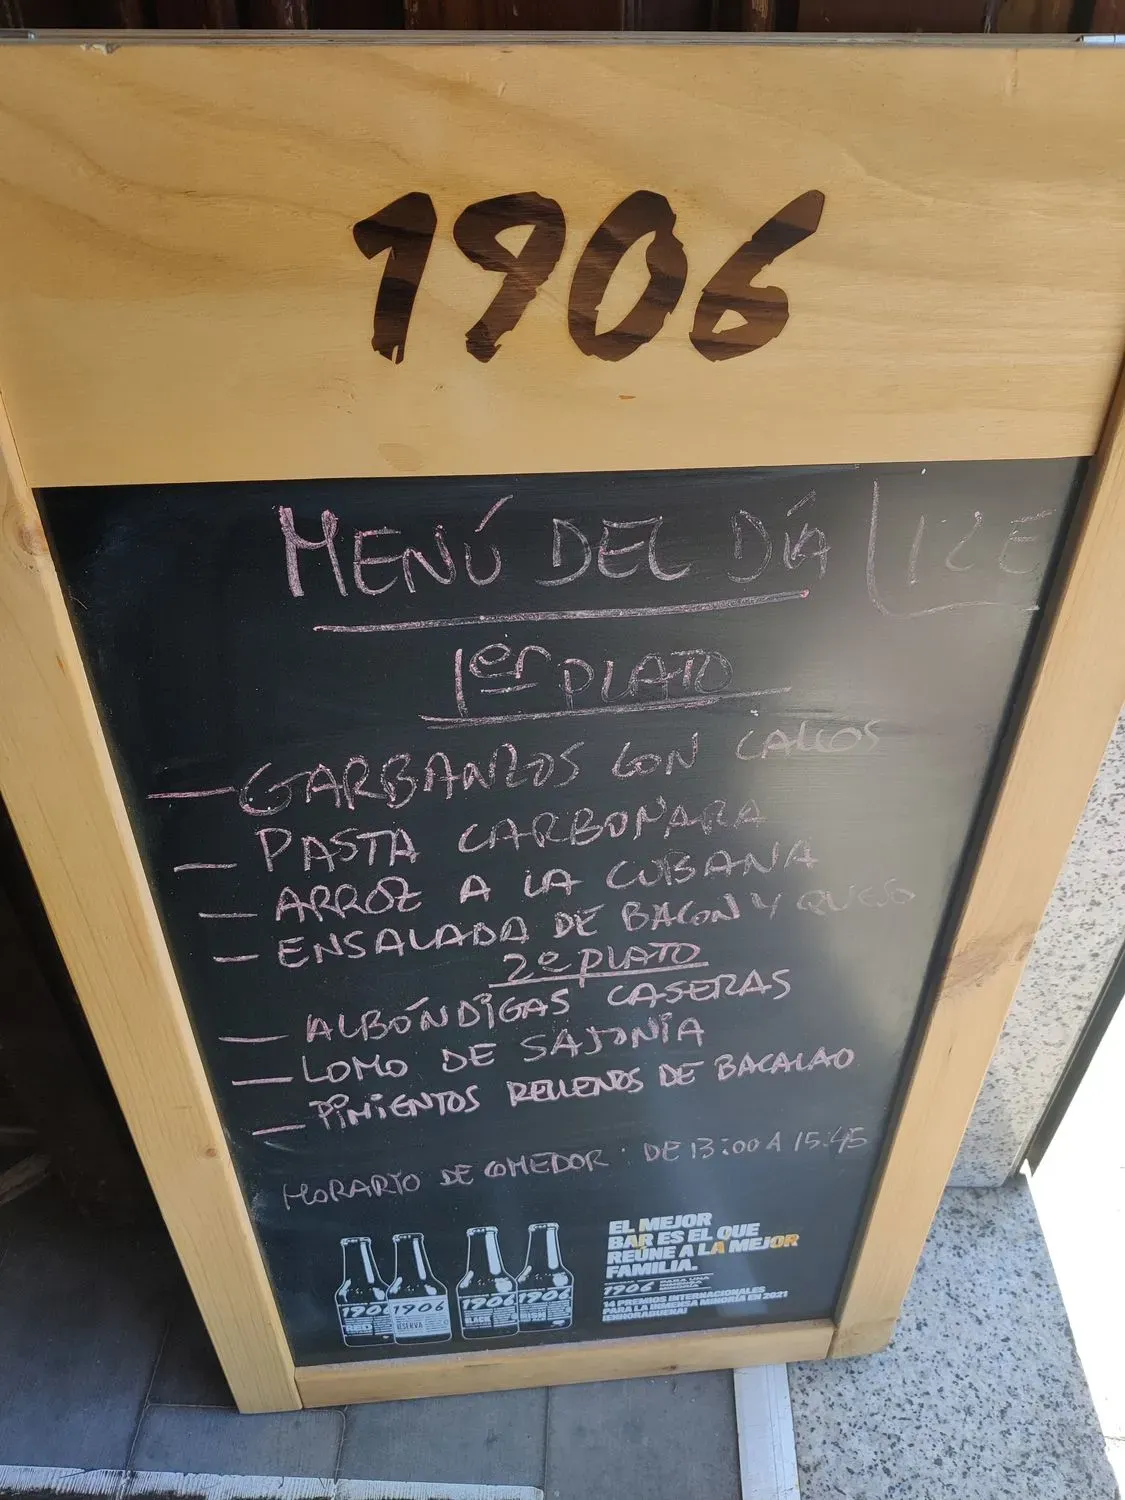 1906
MENÚ DEL DÍA 12€
1er PLATO
— GARBANZOS CON CALLOS
— PASTA CARBONARA
— ARROZ A LA CUBANA
— ENSALADA DE BACON Y QUESO
2º PLATO
— ALBÓNDIGAS CASERAS
— LOMO DE SAJONIA
— PIMIENTOS RELLENOS DE BACALAO
HORARIO DE COMEDOR: DE 13:00 A 15:45
EL MEJOR
BAR ES EL QUE
REÚNE A LA MEJOR
FAMILIA.
1906 PARA UNA INMENSA MINORÍA
14 PREMIOS INTERNACIONALES
PARA LA INMENSA MINORÍA EN 2021
¡ENHORABUENA!
1906 RED
1906 RESERVA
1906 BLACK
1906